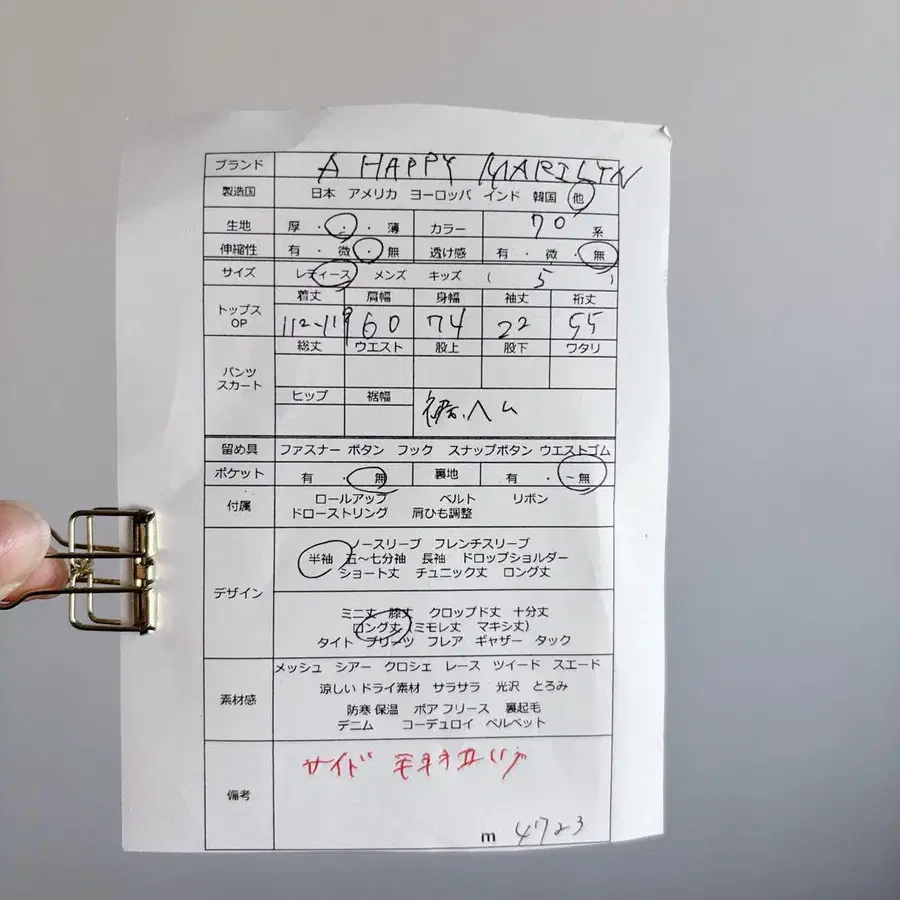 ブランド A HAPPY MARILYN
製造国 日本 アメリカ ヨーロッパ インド 韓国 他
生地 厚 ・ ・ ・ 薄 カラー 70 系
伸縮性 有 ・ 微 ・ 無 透け感 有 ・ 微 ・ 無
サイズ レディース メンズ キッズ ( 5 )
着丈 肩幅 身幅 袖丈 裄丈
トップス
OP
112-119 60 74 22 55
総丈 ウエスト 股上 股下 ワタリ
パンツ
スカート
ヒップ 裾幅
裾.ヘム
留め具 ファスナー ボタン フック スナップボタン ウエストゴム
ポケット 有 ・ 無 裏地 有 ・ 無
付属 ロールアップ ベルト リボン
ドローストリング 肩ひも調整
デザイン
ノースリーブ フレンチスリーブ
半袖 五〜七分袖 長袖 ドロップショルダー
ショート丈 チュニック丈 ロング丈
ミニ丈 膝丈 クロップド丈 十分丈
ロング丈 (ミモレ丈 マキシ丈)
タイト プリーツ フレア ギャザー タック
素材感
メッシュ シアー クロシェ レース ツイード スエード
涼しい ドライ素材 サラサラ 光沢 とろみ
防寒 保温 ボア フリース 裏起毛
デニム コーデュロイ ベルベット
備考
サイド
m 4723